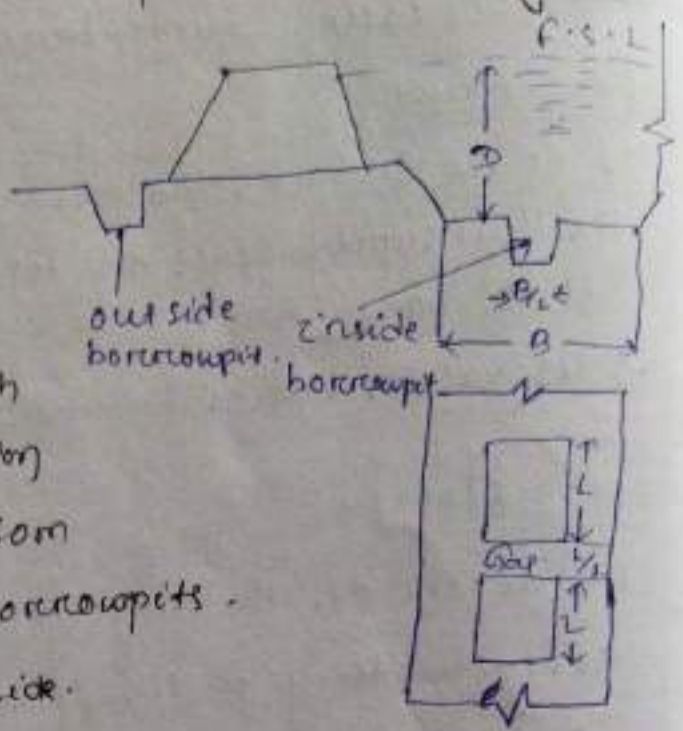 F.S.L
D
outside
borrowpit.
inside
borrowpit
B/2
B
L
Gap L/2
L
om
borrowpits.
side.